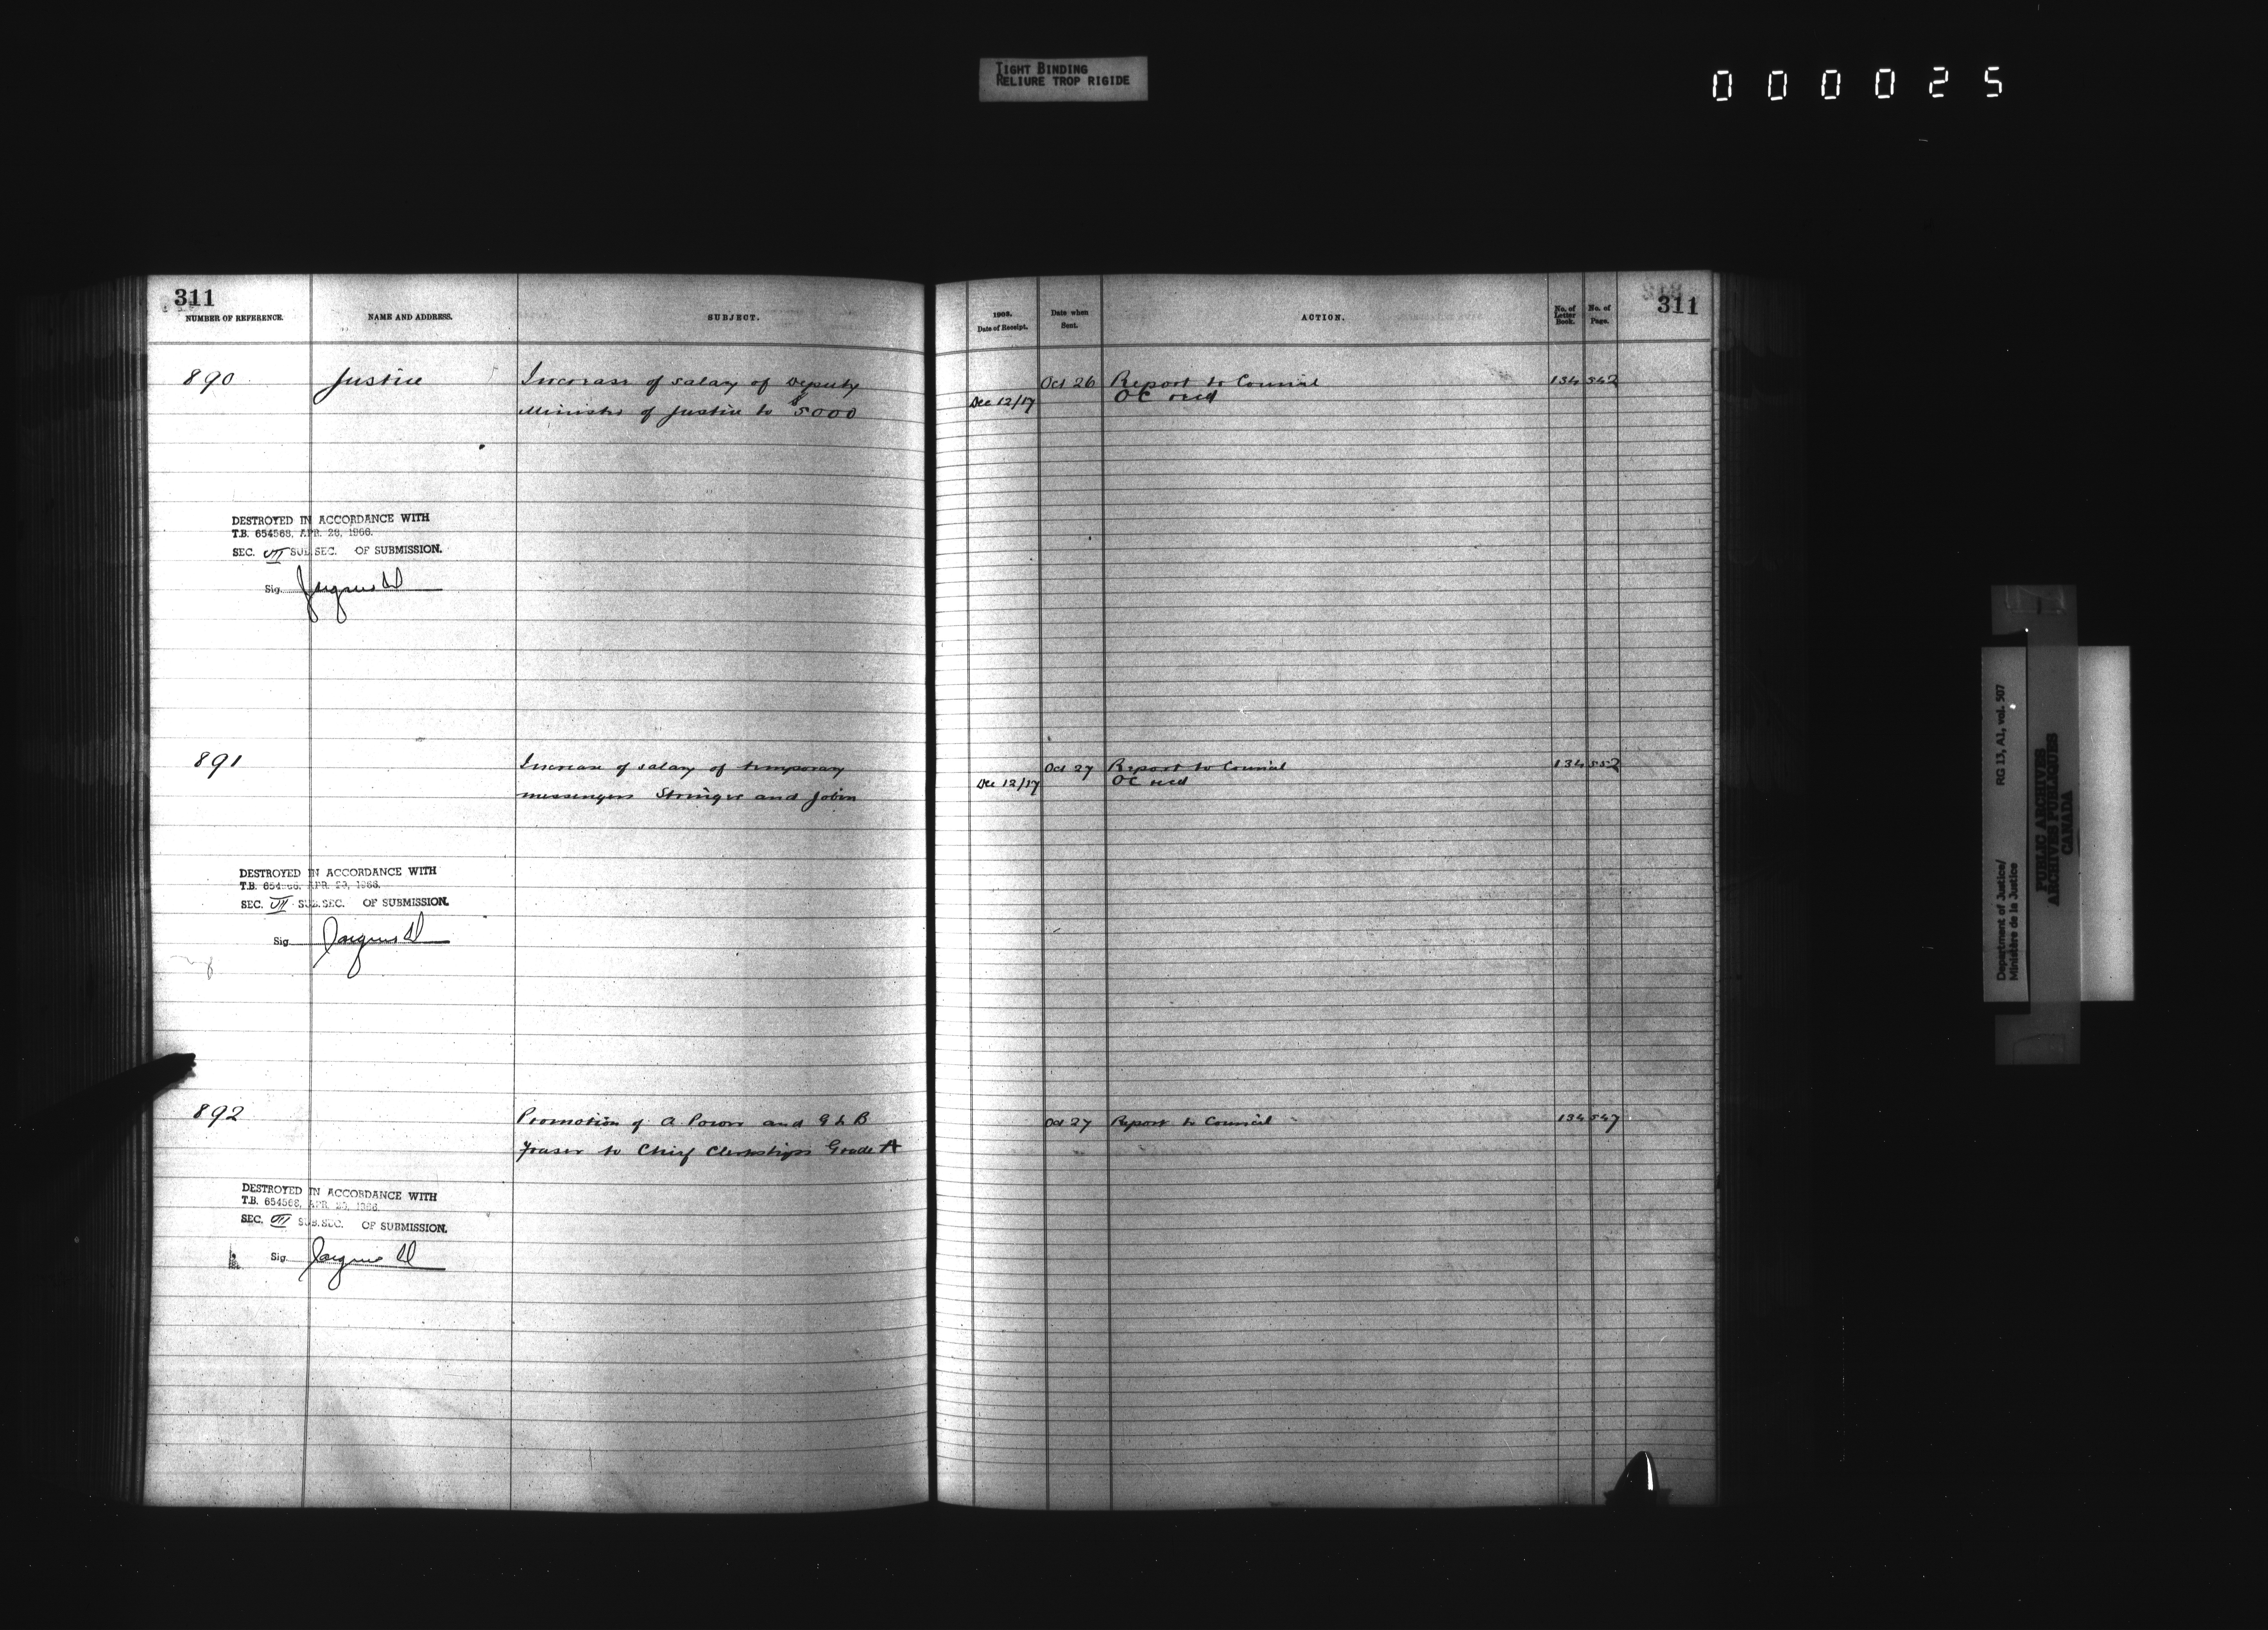 TIGHT BINDING
RELIURE TROP RIGIDE
000025
311
NUMBER OF REFERENCE.
NAME AND ADDRESS.
SUBJECT.
890
Justice
Increase of salary of Deputy
Minister of Justice to $5000
DESTROYED IN ACCORDANCE WITH
T.B. 654568, APR. 28, 1966.
SEC. VII SUB.SEC. OF SUBMISSION.
Sig.
891
Increase of salary of temporary
messengers Stringer and Jobin
DESTROYED IN ACCORDANCE WITH
T.B. APR. 1966.
SEC. VII SUB.SEC. OF SUBMISSION.
Sig.
892
Promotion of A Power and G L B
Fraser to Chief Clerkships Grade A
DESTROYED IN ACCORDANCE WITH
T.B. 654568, APR. 1966.
SEC. VII SUB.SEC. OF SUBMISSION.
Sig.
1908.
Date of Receipt.
Date when
Sent.
ACTION.
No. of
Letter
Book.
No. of
Page.
311
Oct 26 Report to Council 134 542
Dec 12/17 OC recd
Oct 27 Report to Council 134 552
Dec 12/17 OC recd
Oct 27 Report to Council 134 547
Department of Justice/ RG 13, A1, vol. 507
Ministère de la Justice
PUBLIC ARCHIVES
ARCHIVES PUBLIQUES
CANADA